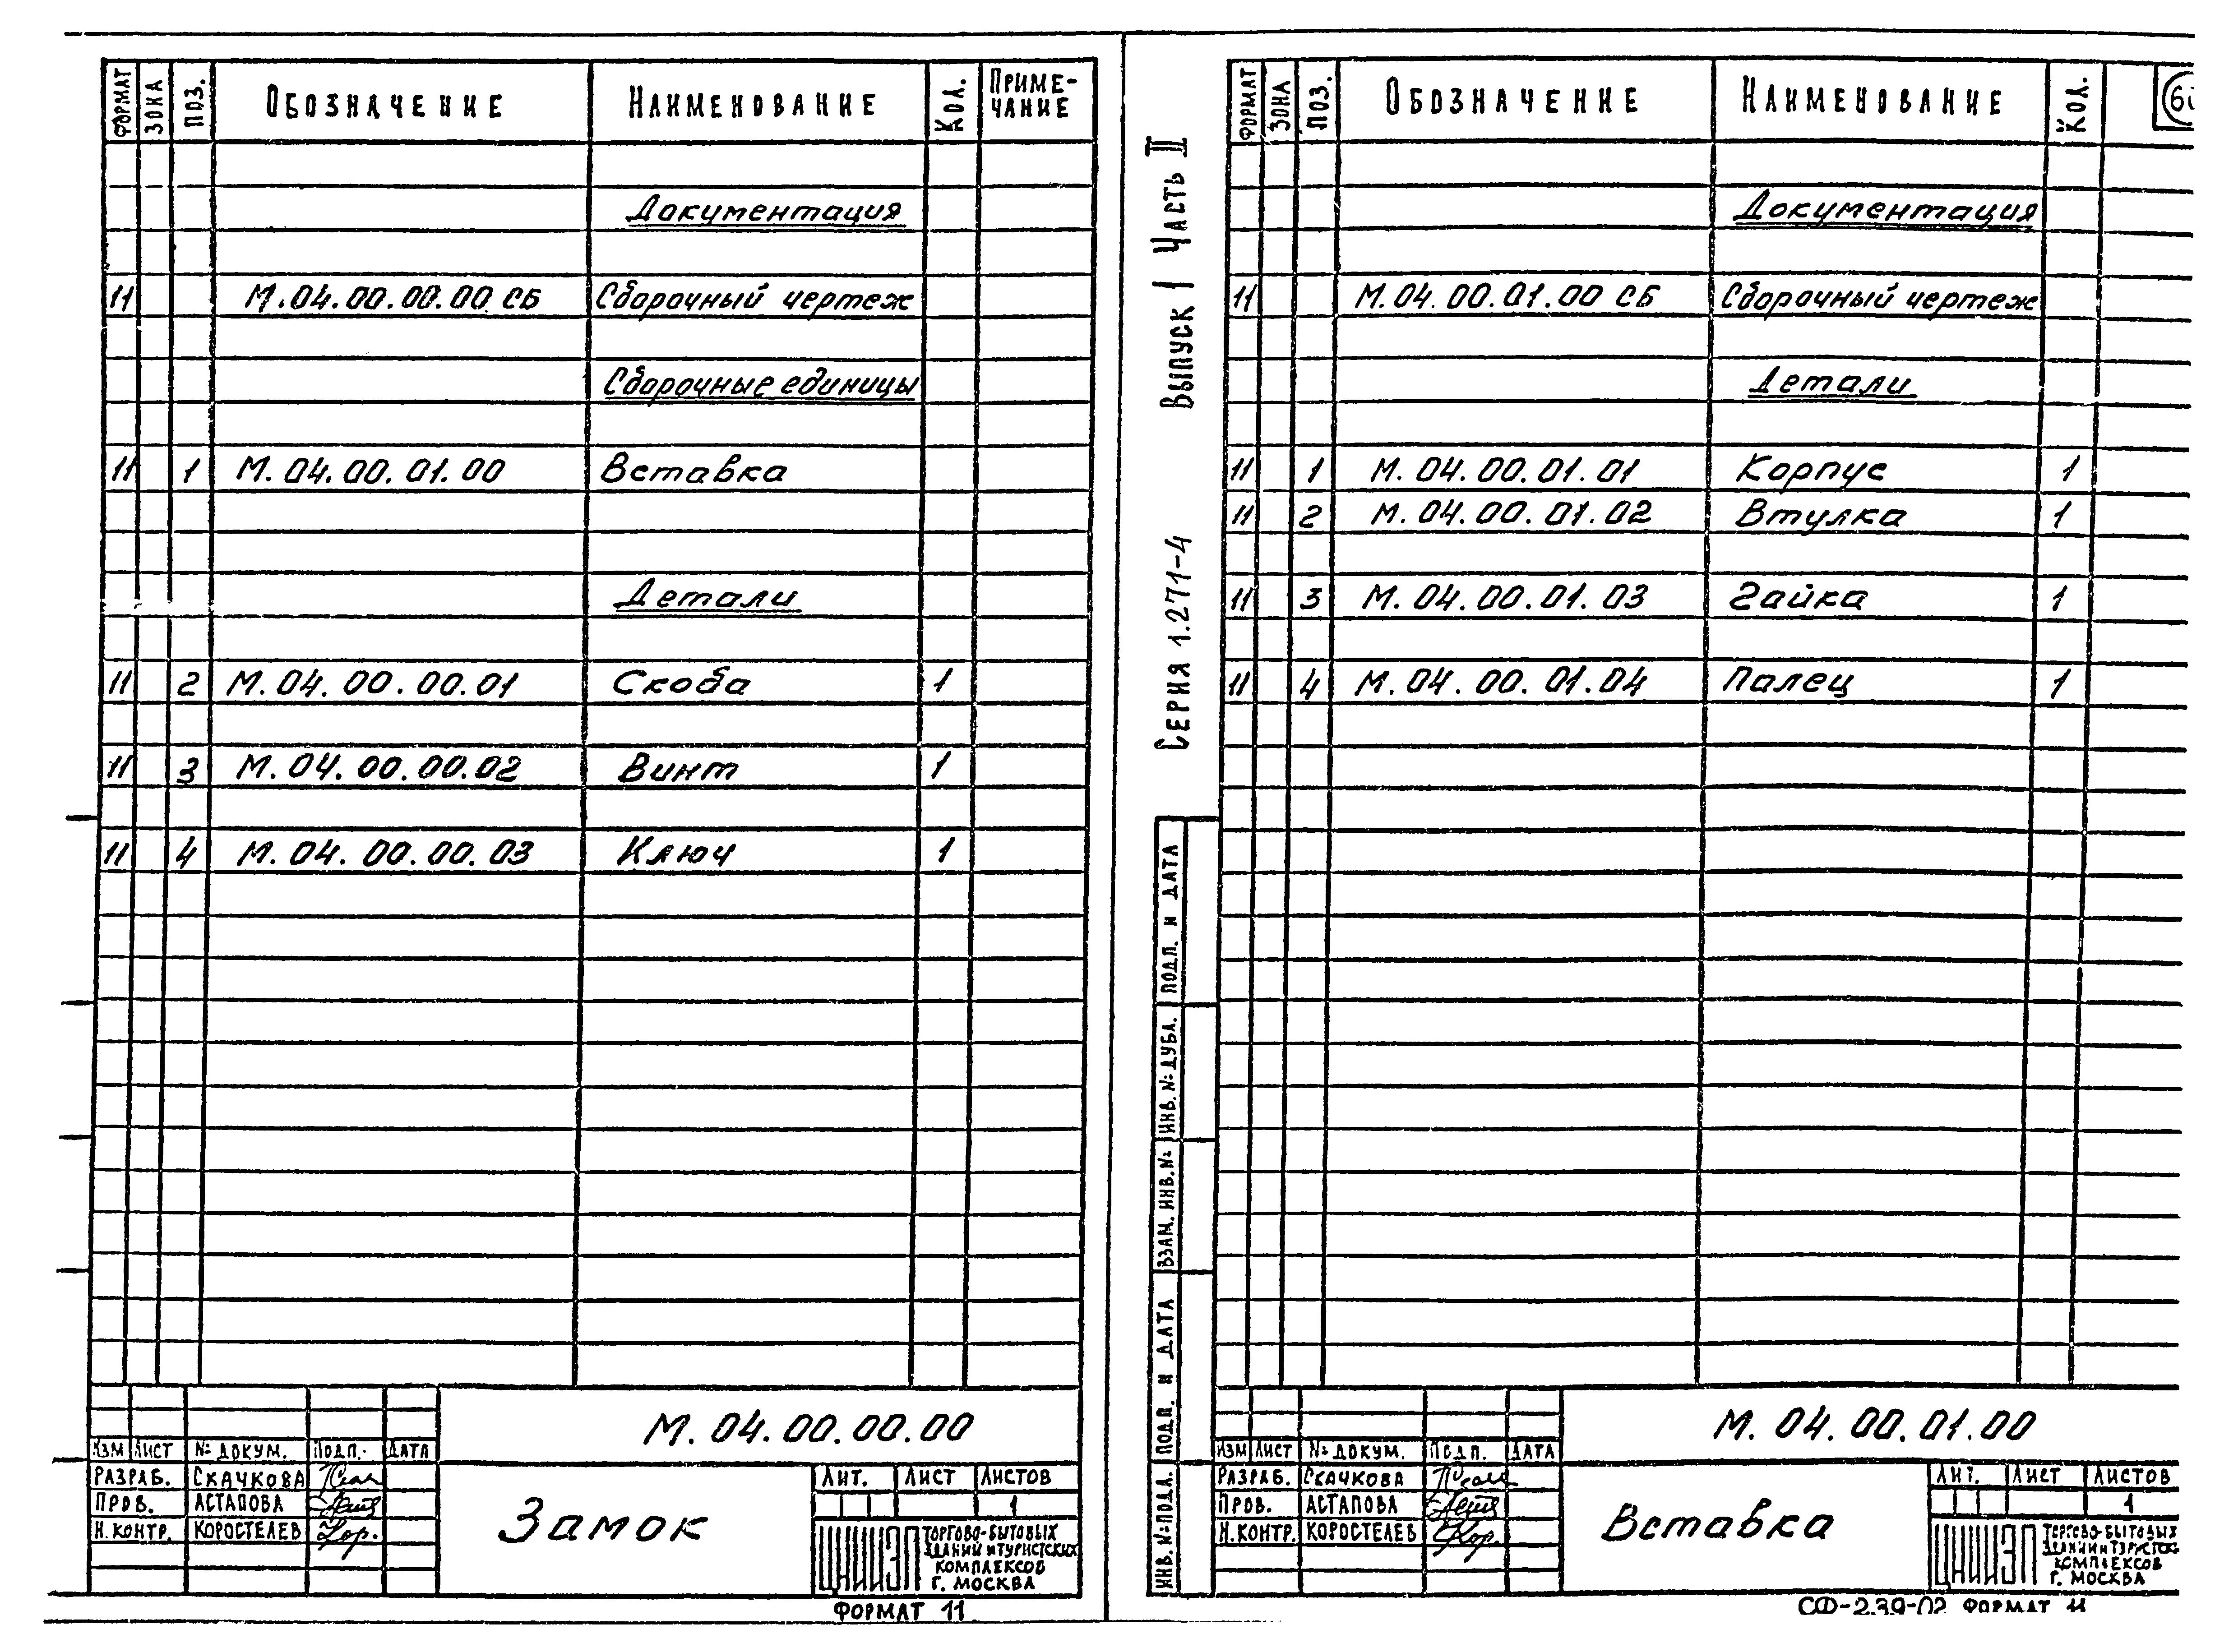 ФОРМАТ ЗОНА ПОЗ. ОБОЗНАЧЕНИЕ НАИМЕНОВАНИЕ КОЛ. ПРИМЕ-
ЧАНИЕ
Документация
11 М.04.00.00.00 СБ Сборочный чертеж
Сборочные единицы
11 1 М.04.00.01.00 Вставка
Детали
11 2 М.04.00.00.01 Скоба 1
11 3 М.04.00.00.02 Винт 1
11 4 М.04.00.00.03 Ключ 1
М.04.00.00.00
ИЗМ ЛИСТ № ДОКУМ. ПОДП. ДАТА
РАЗРАБ. СКАЧКОВА
ПРОВ. АСТАПОВА
Н.КОНТР. КОРОСТЕЛЕВ
Замок
ЛИТ. ЛИСТ ЛИСТОВ
1
ЦНИИЭП ТОРГОВО-БЫТОВЫХ
ЗДАНИЙ И ТУРИСТСКИХ
КОМПЛЕКСОВ
Г. МОСКВА
ФОРМАТ 11
СЕРИЯ 1.271-4 ВЫПУСК 1 ЧАСТЬ II
ФОРМАТ ЗОНА ПОЗ. ОБОЗНАЧЕНИЕ НАИМЕНОВАНИЕ КОЛ.
Документация
11 М.04.00.01.00 СБ Сборочный чертеж
Детали
11 1 М.04.00.01.01 Корпус 1
11 2 М.04.00.01.02 Втулка 1
11 3 М.04.00.01.03 Гайка 1
11 4 М.04.00.01.04 Палец 1
ИНВ. № ПОДЛ. ПОДП. И ДАТА ВЗАМ. ИНВ. № ИНВ. № ДУБЛ. ПОДП. И ДАТА
М.04.00.01.00
ИЗМ ЛИСТ № ДОКУМ. ПОДП. ДАТА
РАЗРАБ. СКАЧКОВА
ПРОВ. АСТАПОВА
Н.КОНТР. КОРОСТЕЛЕВ
Вставка
ЛИТ. ЛИСТ ЛИСТОВ
1
ЦНИИЭП ТОРГОВО-БЫТОВЫХ
ЗДАНИЙ И ТУРИСТСКИХ
КОМПЛЕКСОВ
Г. МОСКВА
СФ-239-02 ФОРМАТ 11